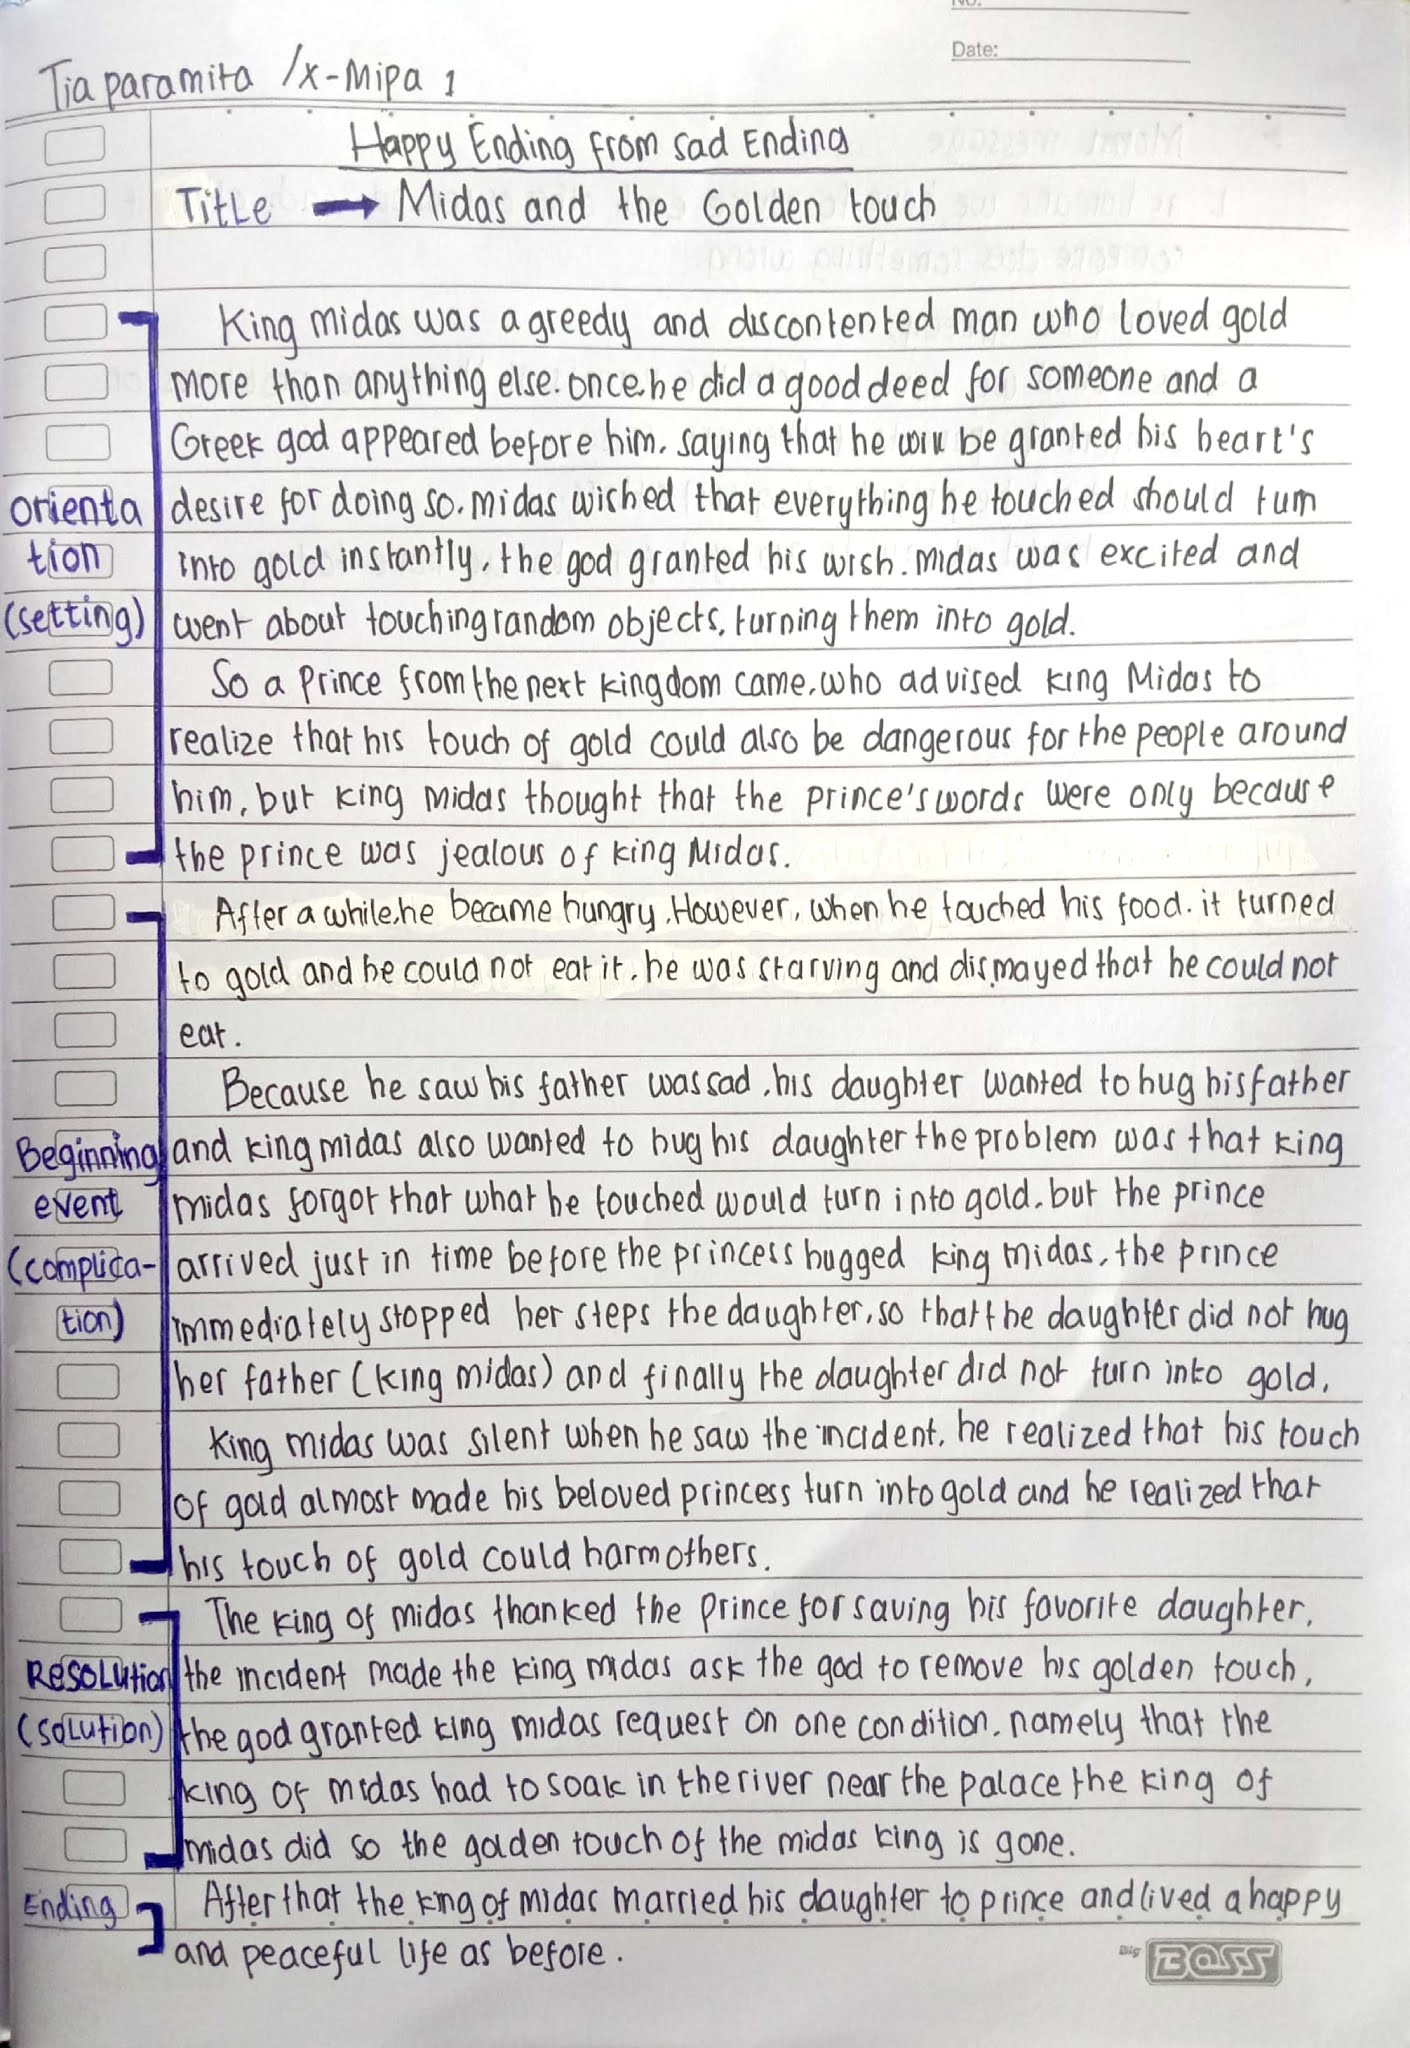 No.
Date:
Tia paramita /X-Mipa 1
Happy Ending from Sad Ending
Title → Midas and the Golden touch
King midas was a greedy and discontented man who loved gold
more than anything else. once, he did a good deed for someone and a
Greek god appeared before him, saying that he will be granted his heart's
orienta desire for doing so. midas wished that everything he touched should turn
tion into gold instantly, the god granted his wish. midas was excited and
(setting) went about touching random objects, turning them into gold.
So a prince from the next kingdom came, who advised king Midas to
realize that his touch of gold could also be dangerous for the people around
him, but king midas thought that the prince's words were only because
the prince was jealous of king Midas.
After a while, he became hungry. However, when he touched his food. it turned
to gold and he could not eat it. he was starving and dismayed that he could not
eat.
Because he saw his father was sad, his daughter wanted to hug his father
Beginning and king midas also wanted to hug his daughter the problem was that king
event midas forgot that what he touched would turn into gold, but the prince
(complica- arrived just in time before the princess hugged king midas, the prince
tion) immediately stopped her steps the daughter, so that the daughter did not hug
her father (king midas) and finally the daughter did not turn into gold,
King midas was silent when he saw the incident, he realized that his touch
of gold almost made his beloved princess turn into gold and he realized that
his touch of gold could harm others.
The king of midas thanked the prince for saving his favorite daughter,
Resolution the incident made the king midas ask the god to remove his golden touch,
(solution) the god granted king midas request on one condition, namely that the
king of midas had to soak in the river near the palace the king of
midas did so the golden touch of the midas king is gone.
Ending After that the king of midas married his daughter to prince and lived a happy
and peaceful life as before.
Big BOSS